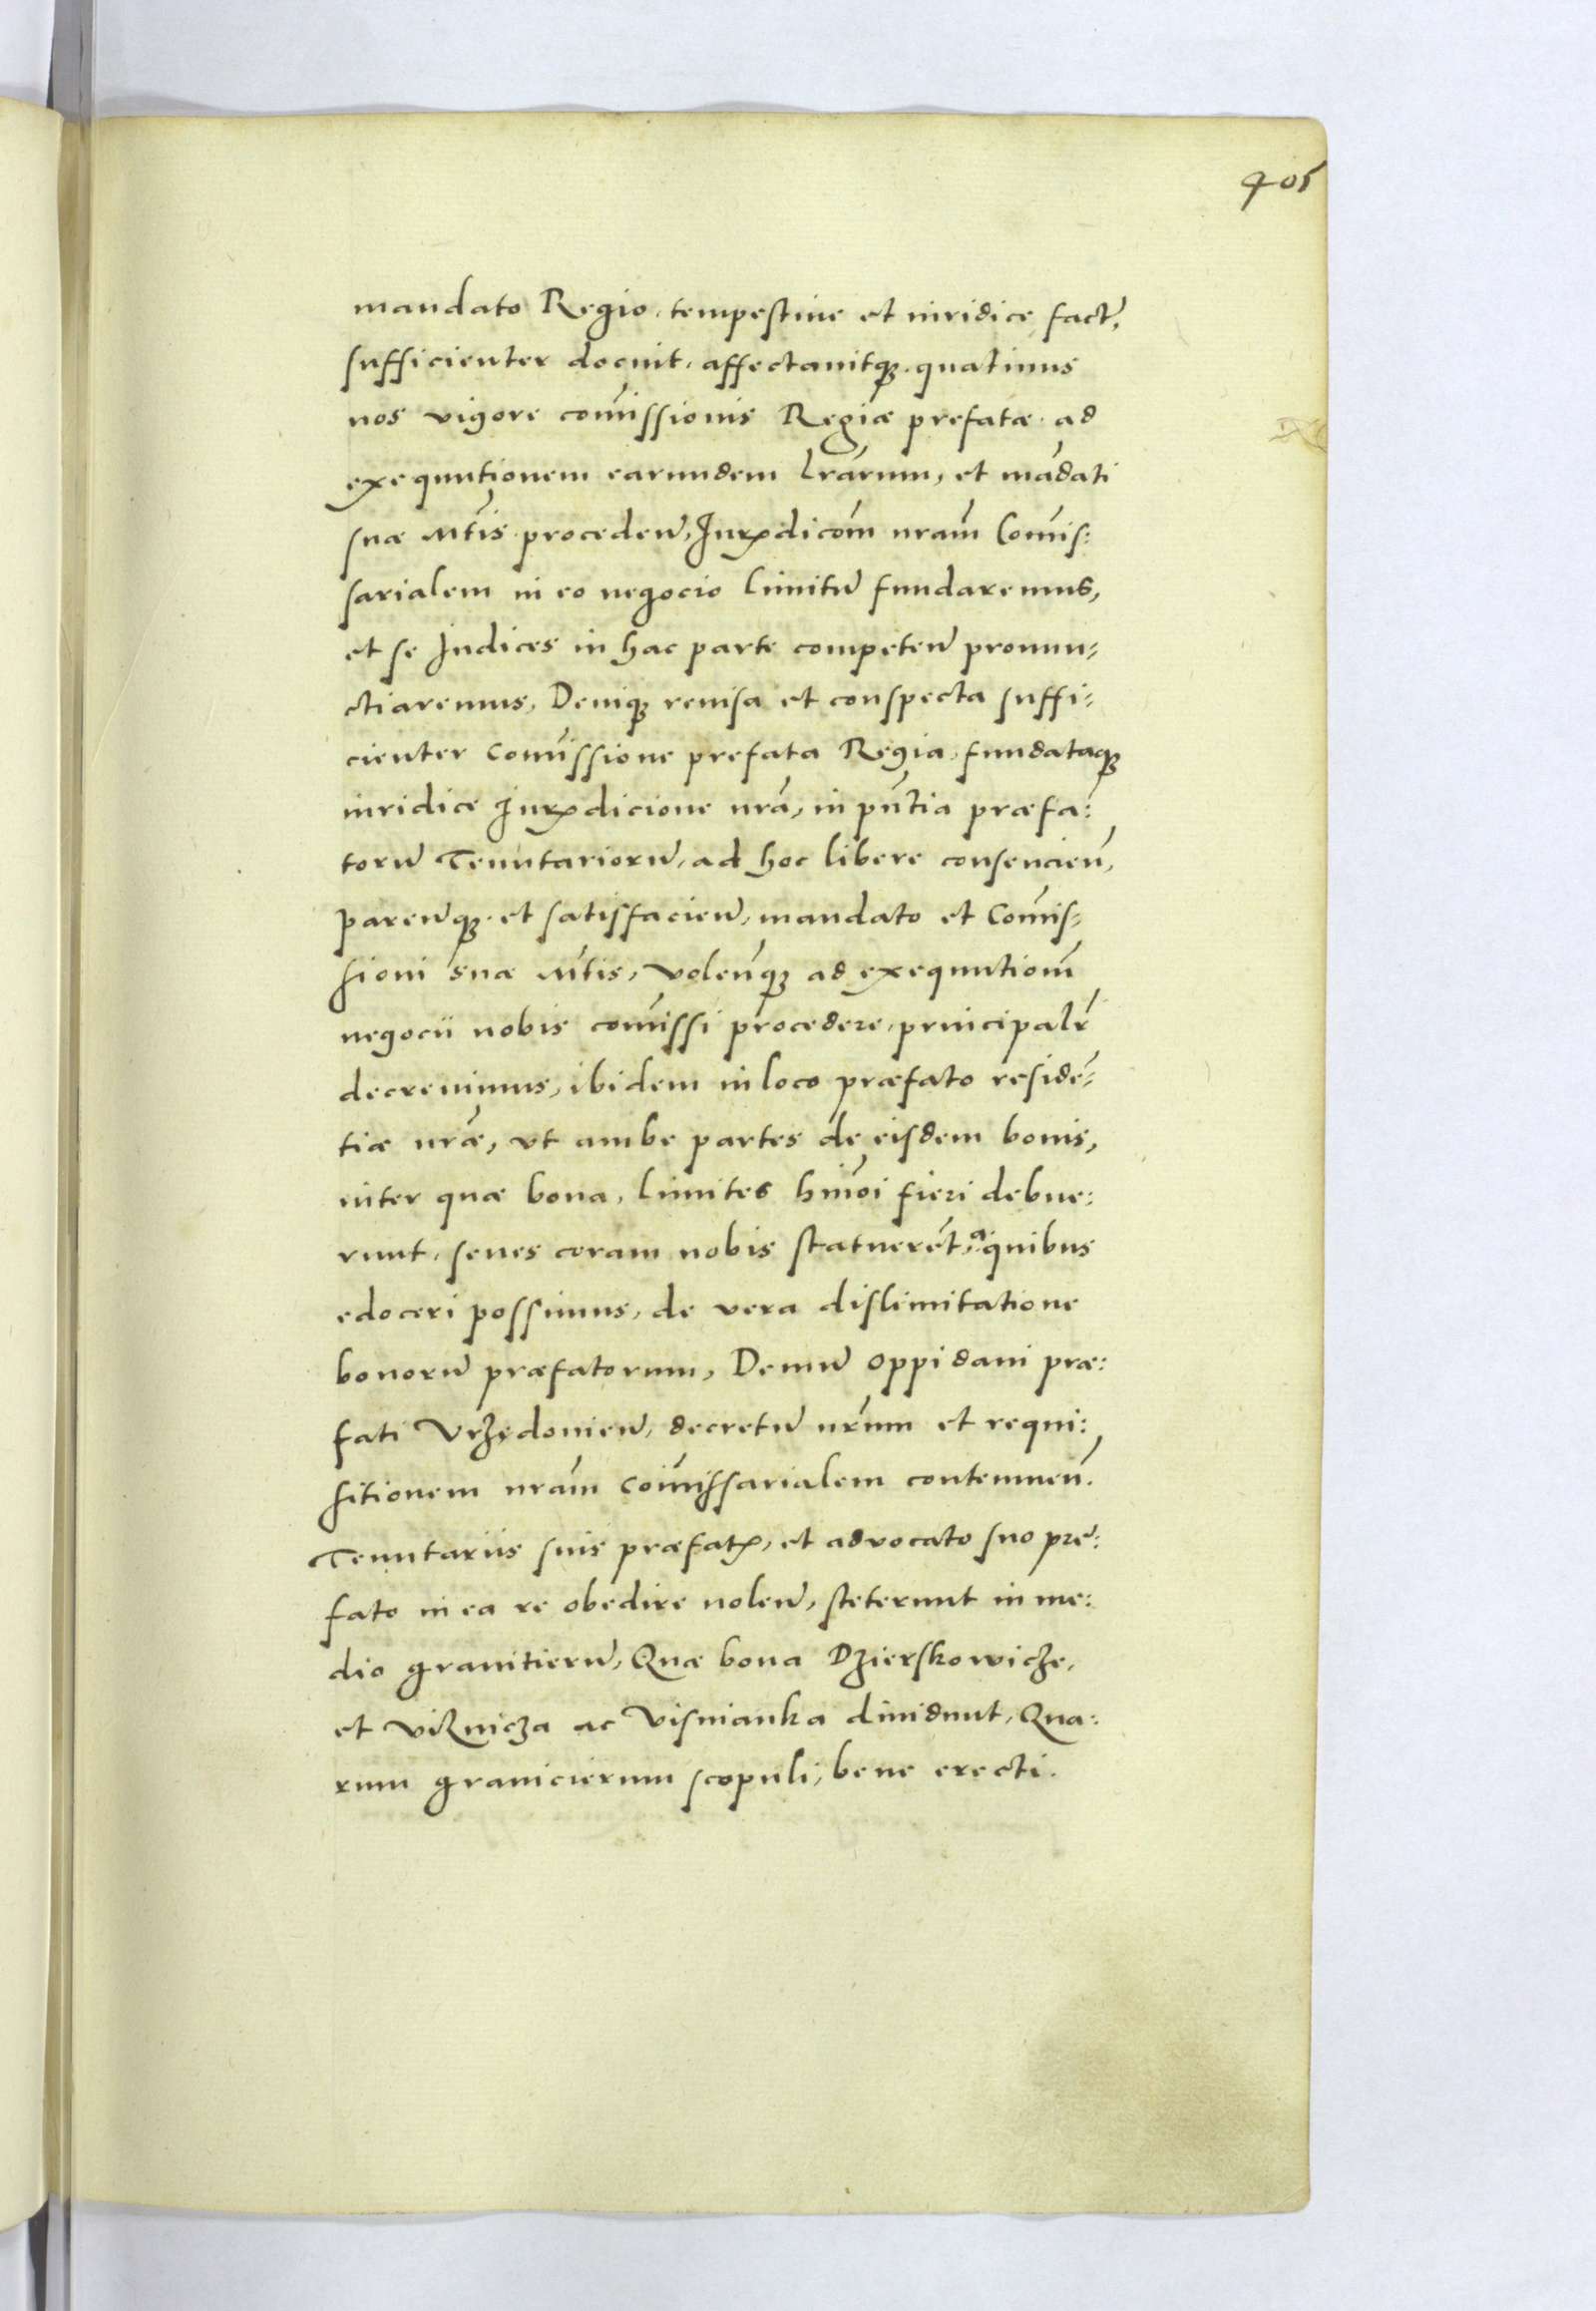 405
mandato Regio, tempestiue et iuridice fact̄,
sufficienter docuit, affectauitq̄ꝫ. quatinus
nos vigore com̄issionis Regiæ prefatæ. ad
exequutionem earundem Lr̄arum, et mādati
suæ Mt̄is proceden̄, Iurꝭdicōm nrām Com̄is:
sarialem in eo negocio limitū fundaremus,
et se Iudices in hac parte competen̄ pronun,
ctiaremus, Deniqꝫ reuisa et conspecta suffi,
cienter Com̄issione prefata Regia, fundataqꝫ
iuridice Iurꝭdicione nrā, in pn̄tia præfa:
torū Tenutariorū, ad hoc libere consencien̄,
paren̄qꝫ. et satisfacien̄, mandato et Com̄is,
sioni suæ Mt̄is, Volen̄qꝫ ad exequutionē
negocii nobis com̄issi procedere, principalr̄
decreuimus, ibidem in loco præfato residē,
tiæ nrǣ, vt ambe partes de eisdem bonis,
inter quæ bona, limites hm̄oi fieri debue:
runt, senes coram nobis statuerēt, a quibus
edoceri possimus, de vera dislimitatione
bonorū præfatorum, Demū oppidani præ:
fati Vrzędouien̄, decretū nr̄um et requi:
sitionem nrām Com̄issarialem contemnen̄.
Tenutariis suis præfatꝭ, et advocato suo præ:
fato in ea re obedire nolen̄, steterunt in me:
dio granitierū, Quæ bona Dzierskowicze,
et Viznicza ac Visnianka diuidunt, Qua:
rum granicierum scopuli, bene erecti.